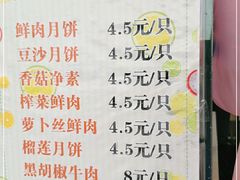 鲜肉月饼 4.5元/只
豆沙月饼 4.5元/只
香菇净素 4.5元/只
榨菜鲜肉 4.5元/只
萝卜丝鲜肉 4.5元/只
榴莲月饼 4.5元/只
黑胡椒牛肉 8元/只